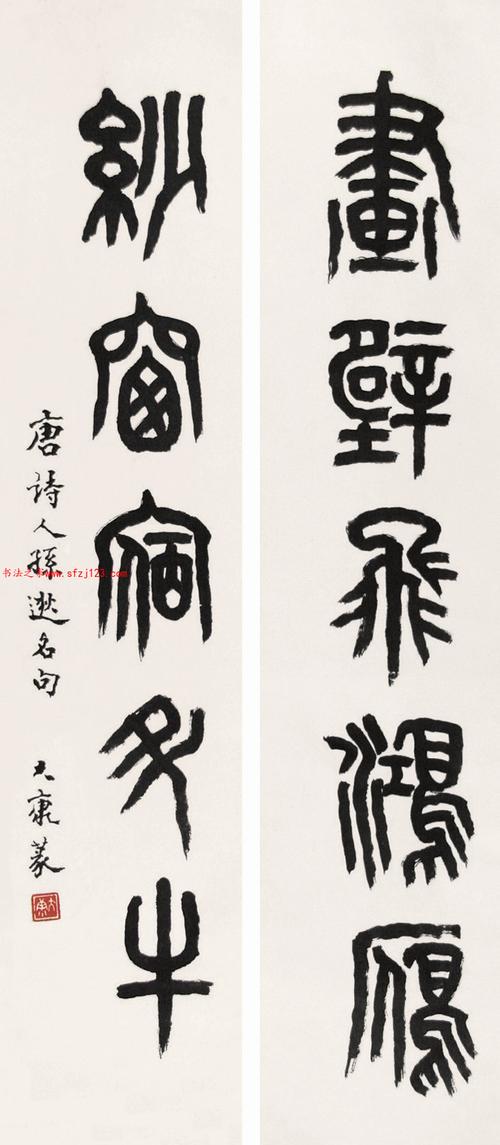 畫壁飛鴻雁
紗窗宿斗牛
唐詩人孫逖名句 大康篆
大康
书法之家www.sfzj123.com